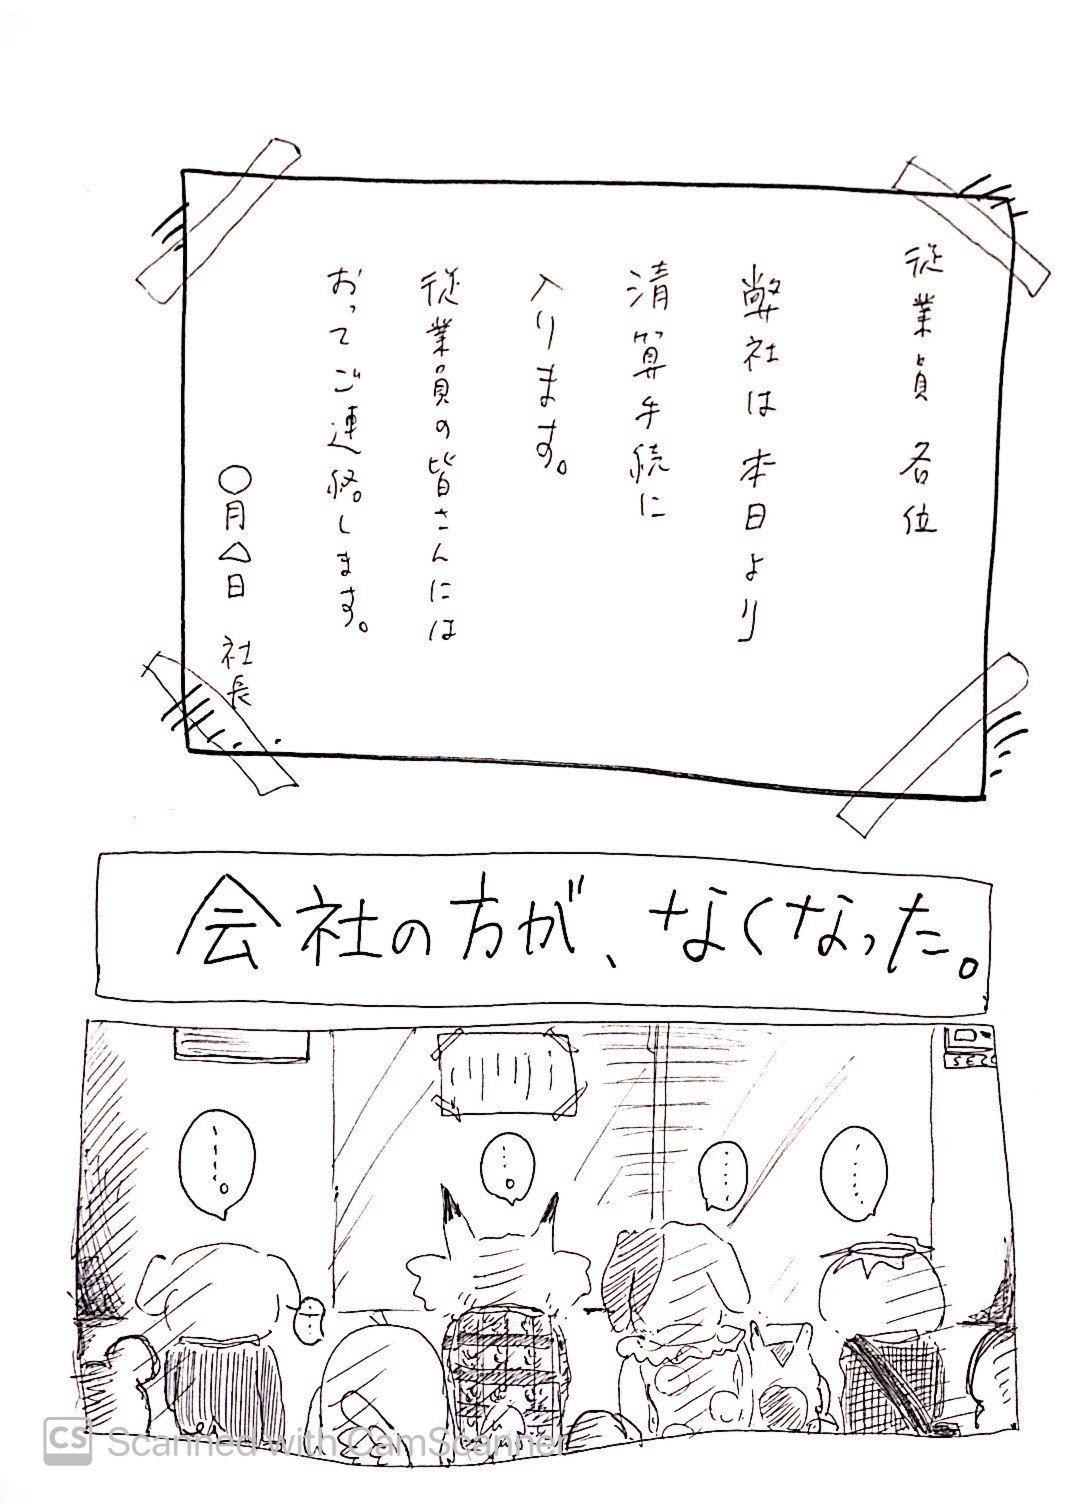 従業員 各位
弊社は本日より
清算手続に
入ります。
従業員の皆さんには
おってご連絡します。
〇月△日 社長
会社の方が、なくなった。
…。
…。
……
……
CS Scanned with CamScanner